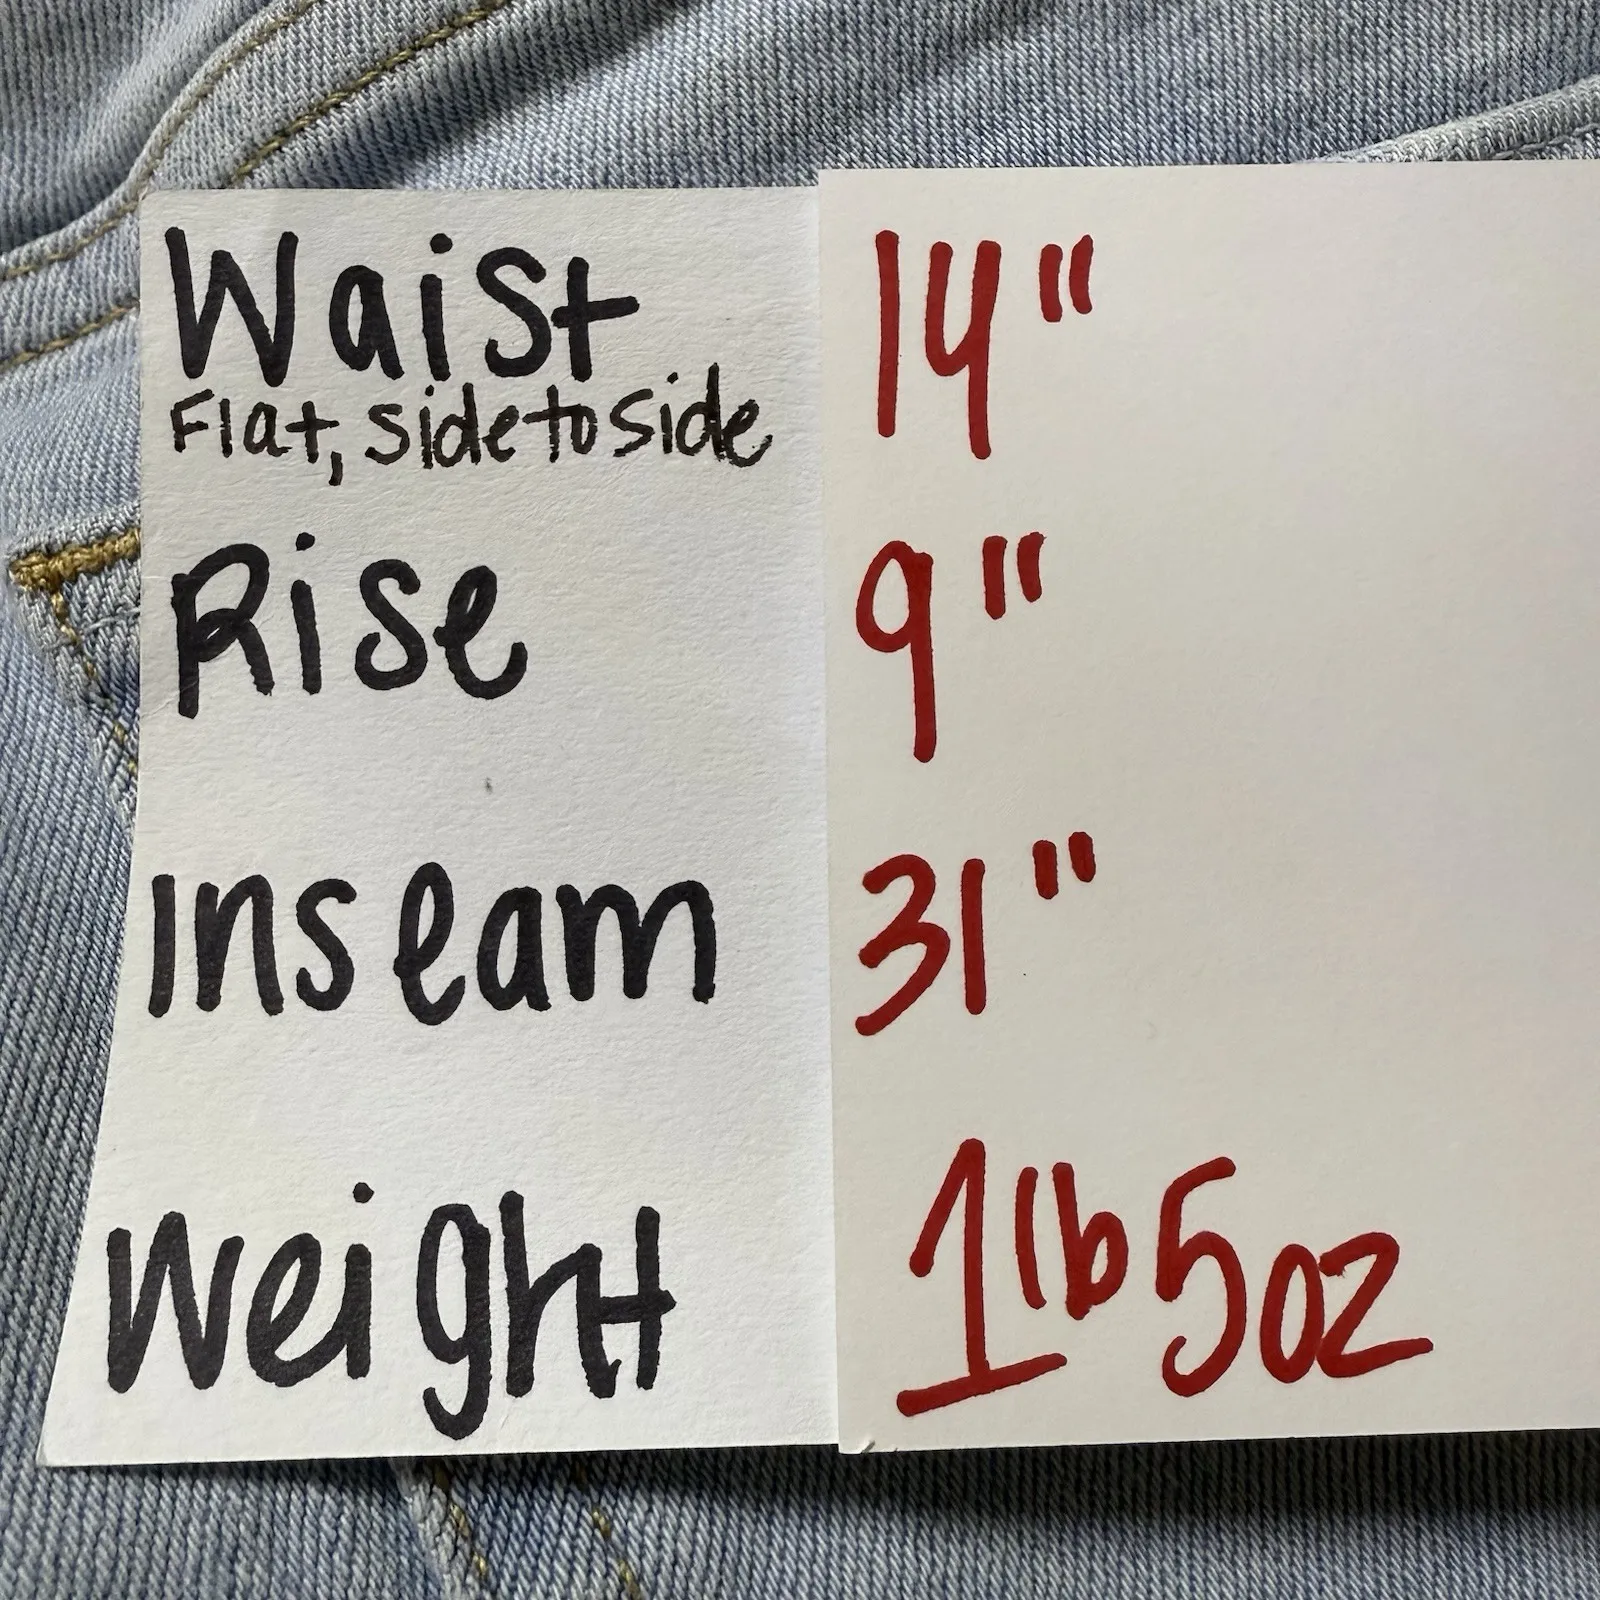 Waist 14"
Flat, side to side
Rise 9"
Inseam 31"
Weight 1lb 5oz